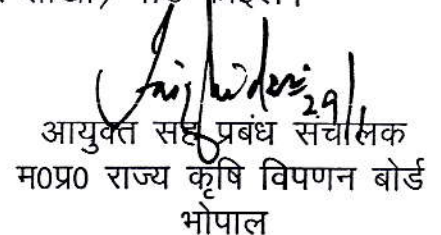 29/1
आयुक्त सह प्रबंध संचालक
म0प्र0 राज्य कृषि विपणन बोर्ड
भोपाल